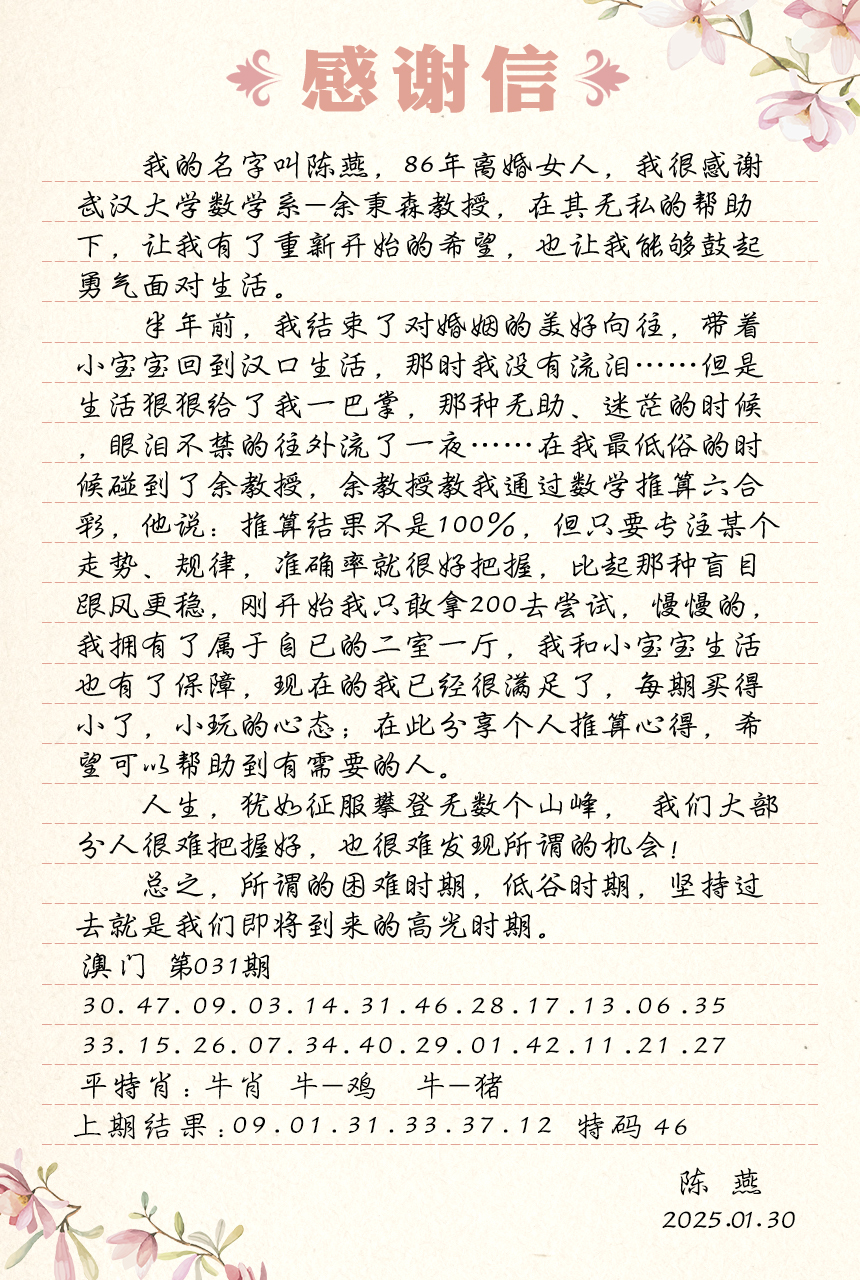 感谢信
我的名字叫陈燕，86年离婚女人，我很感谢
武汉大学数学系—余秉森教授，在其无私的帮助
下，让我有了重新开始的希望，也让我能够鼓起
勇气面对生活。
半年前，我结束了对婚姻的美好向往，带着
小宝宝回到汉口生活，那时我没有流泪……但是
生活狠狠给了我一巴掌，那种无助、迷茫的时候
，眼泪不禁的往外流了一夜……在我最低俗的时
候碰到了余教授，余教授教我通过数学推算六合
彩，他说：推算结果不是100%，但只要专注某个
走势、规律，准确率就很好把握，比起那种盲目
跟风更稳，刚开始我只敢拿200去尝试，慢慢的，
我拥有了属于自已的二室一厅，我和小宝宝生活
也有了保障，现在的我已经很满足了，每期买得
小了，小玩的心态；在此分享个人推算心得，希
望可以帮助到有需要的人。
人生，犹如征服攀登无数个山峰， 我们大部
分人很难把握好，也很难发现所谓的机会！
总之，所谓的困难时期，低谷时期，坚持过
去就是我们即将到来的高光时期。
澳门 第031期
30.47.09.03.14.31.46.28.17.13.06.35
33.15.26.07.34.40.29.01.42.11.21.27
平特肖：牛肖 牛—鸡 牛—猪
上期结果：09.01.31.33.37.12 特码 46
陈 燕
2025.01.30